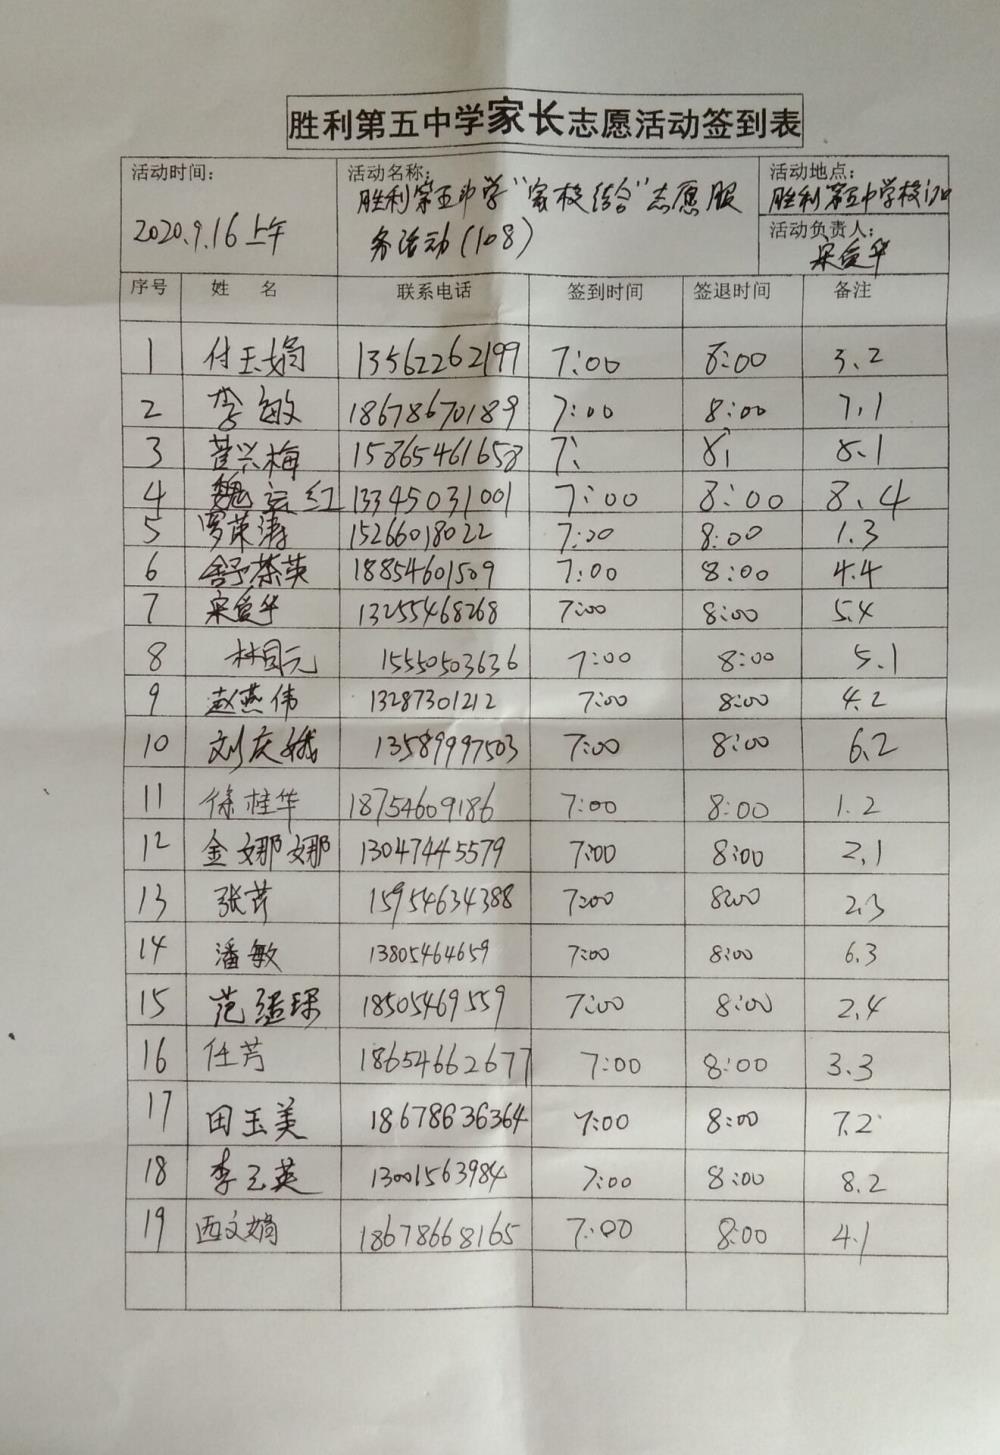 胜利第五中学家长志愿活动签到表
活动时间：
2020.9.16上午
活动名称：
胜利第五中学"家校结合"志愿服
务活动(108)
活动地点：
胜利第五中学校门口
活动负责人：
宋爱华
序号 姓 名 联系电话 签到时间 签退时间 备注
1 付玉娟 13562262199 7:00 8:00 3.2
2 李敏 18678670189 7:00 8:00 7.1
3 兴梅 15865461658 7: 8: 8.1
4 魏红 13345031001 7:00 8:00 8.4
5 罗荣涛 15266018022 7:00 8:00 1.3
6 舒荣英 18854601509 7:00 8:00 4.4
7 宋爱华 13255468268 7:00 8:00 5.4
8 林同元 15550503636 7:00 8:00 5.1
9 赵燕伟 13287301212 7:00 8:00 4.2
10 刘庆娥 13589997503 7:00 8:00 6.2
11 徐桂华 18754609186 7:00 8:00 1.2
12 金娜娜 13047445579 7:00 8:00 2.1
13 张芹 15954634388 7:00 8:00 2.3
14 潘敏 13805464659 7:00 8:00 6.3
15 范 18505469559 7:00 8:00 2.4
16 任芳 18654662677 7:00 8:00 3.3
17 田玉美 18678636364 7:00 8:00 7.2
18 李玉英 13001563984 7:00 8:00 8.2
19 西文娟 18678668165 7:00 8:00 4.1